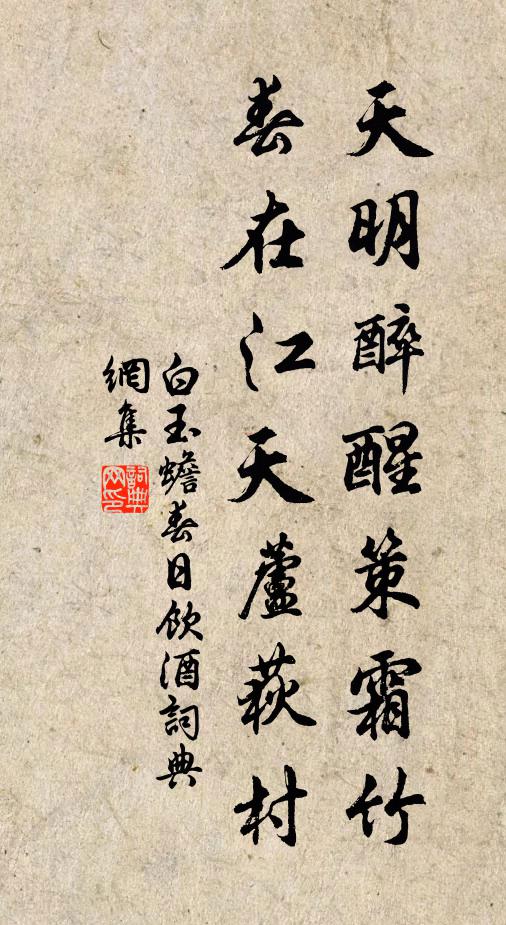 天明醉醒策霜竹
春在江天蘆荻村
白玉蟾春日飲酒詞典
網集
詞典網印